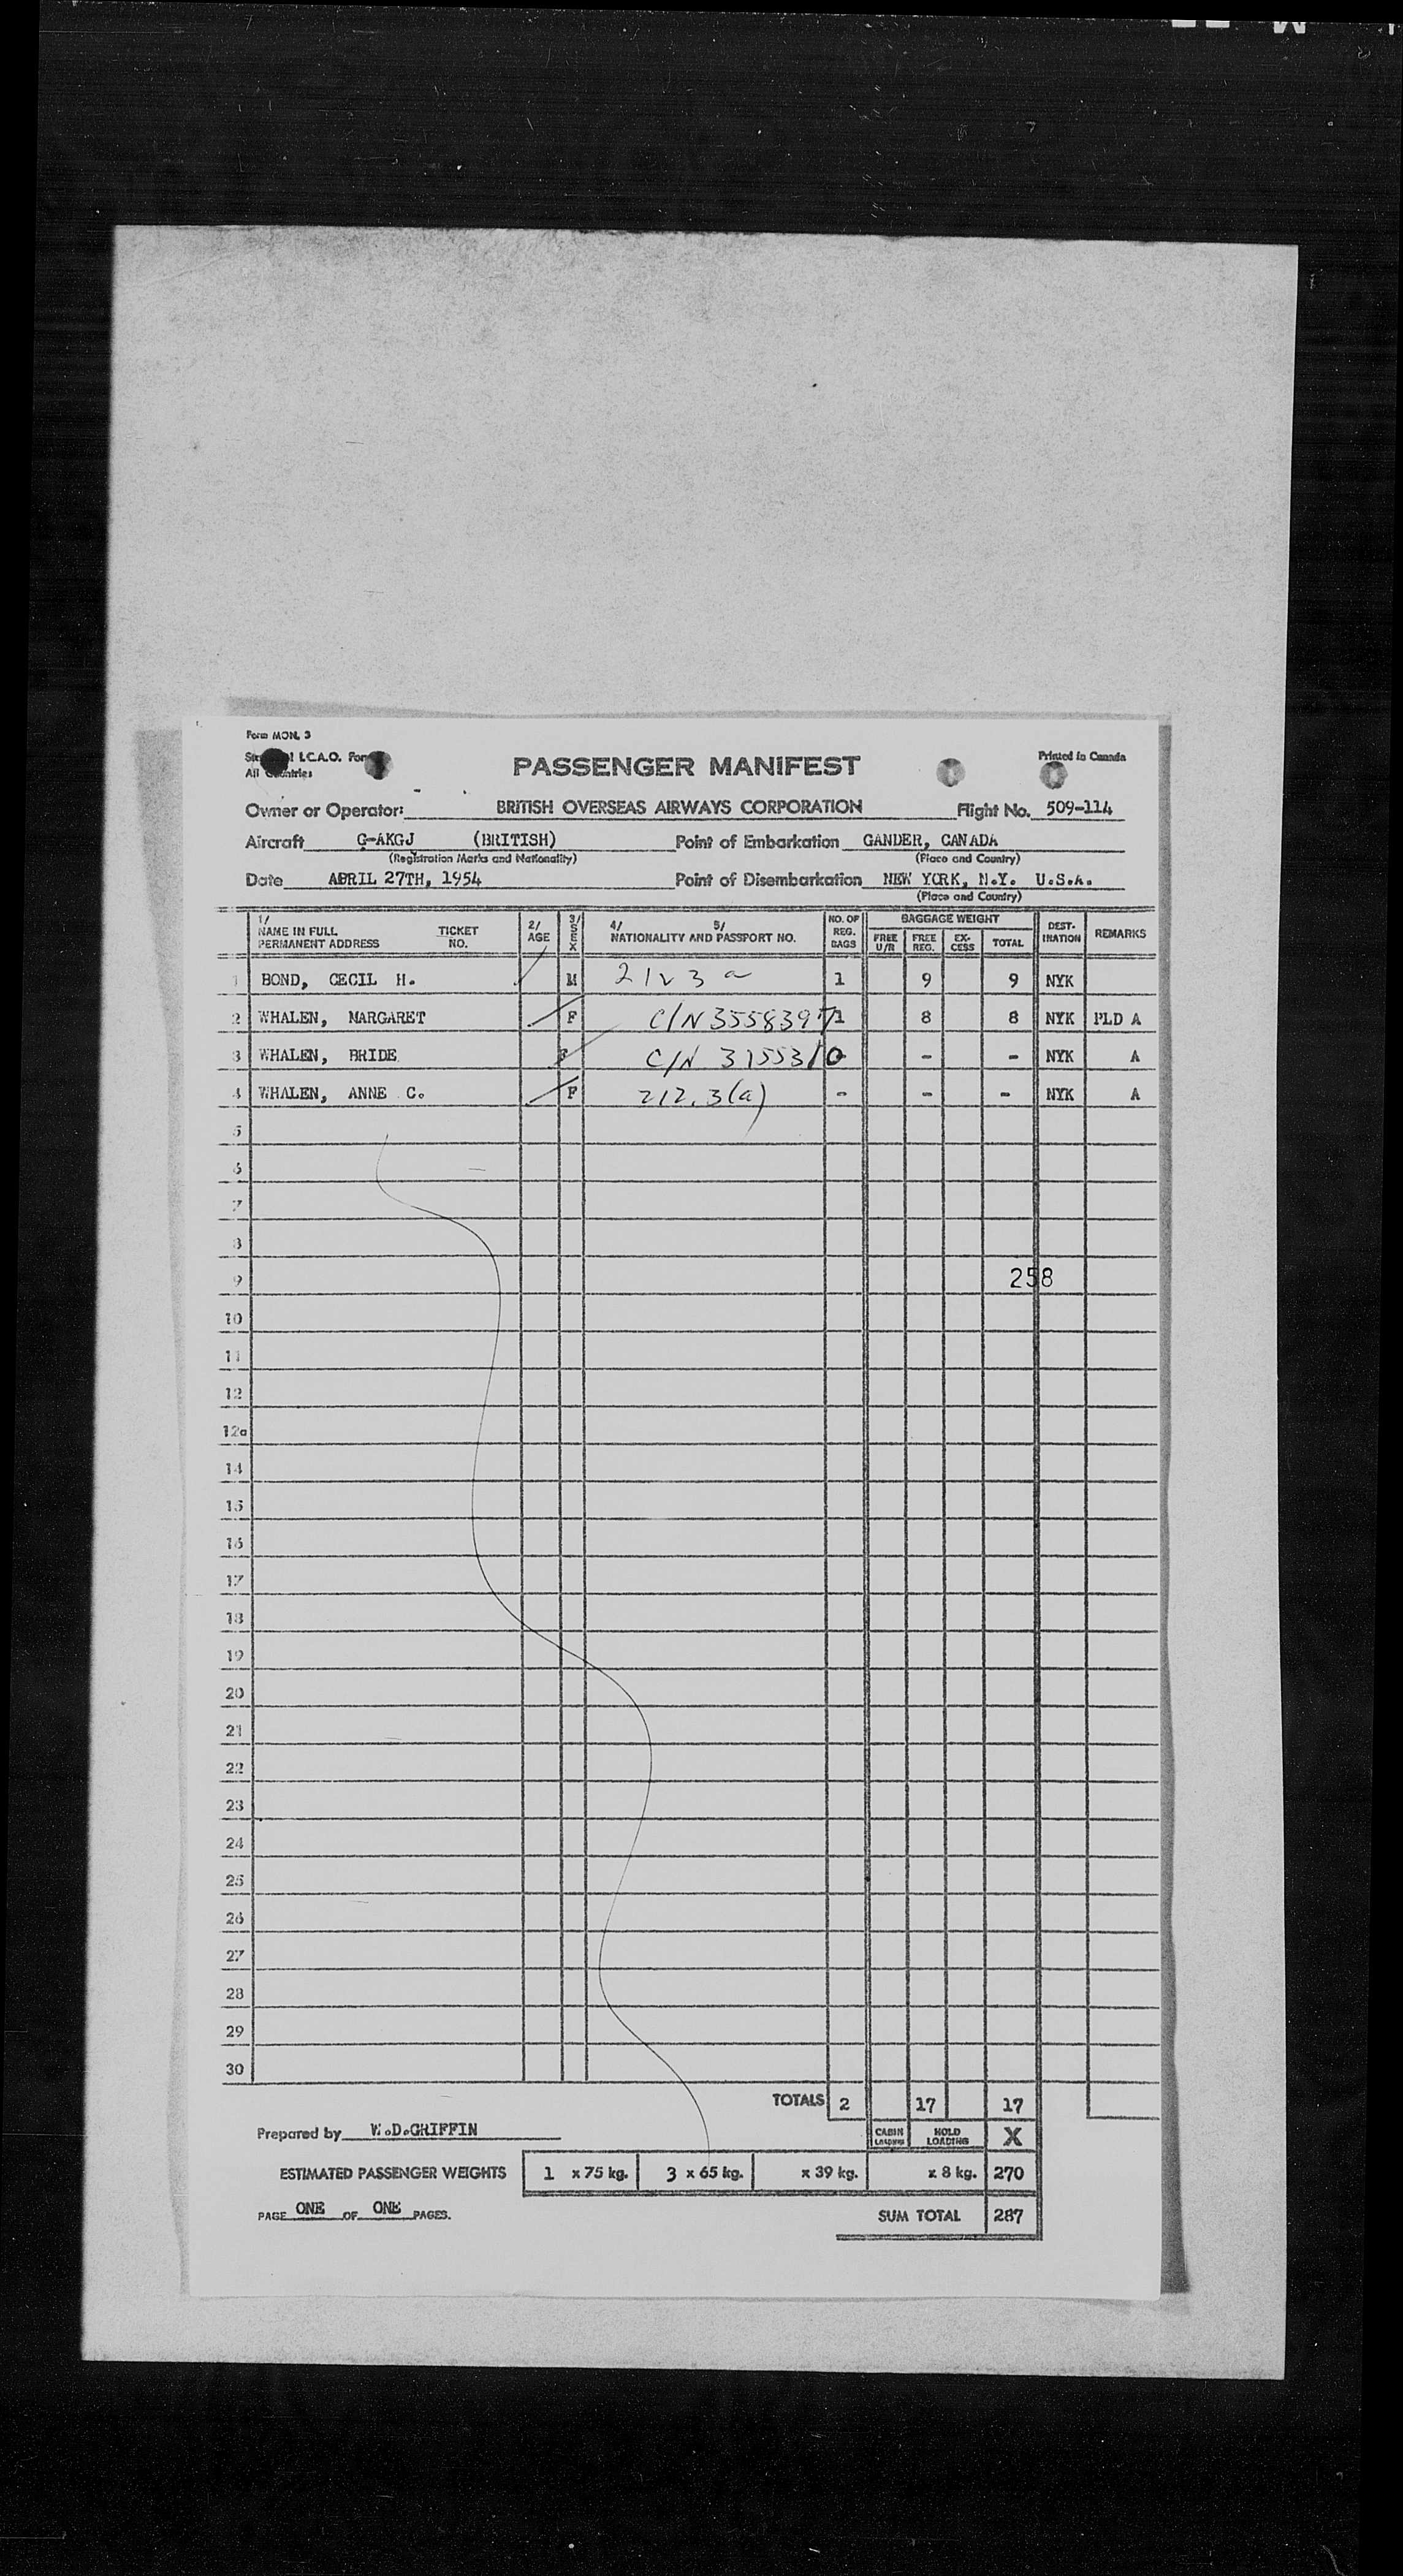 Form MON. 3
I.C.A.O. For
All Countries
Printed in Canada
PASSENGER MANIFEST
Owner or Operator: BRITISH OVERSEAS AIRWAYS CORPORATION Flight No. 509-114
Aircraft G-AKGJ (BRITISH) Point of Embarkation GANDER, CANADA
(Registration Marks and Nationality) (Place and Country)
Date APRIL 27TH, 1954 Point of Disembarkation NEW YORK, N.Y. U.S.A.
(Place and Country)
1/ NAME IN FULL PERMANENT ADDRESS TICKET NO. 2/ AGE 3/ SEX 4/ 5/ NATIONALITY AND PASSPORT NO. NO. OF REG. BAGS BAGGAGE WEIGHT FREE U/R FREE REG. EX-CESS TOTAL DEST-INATION REMARKS
1 BOND, CECIL H. M 212 3 a 1 9 9 NYK
2 WHALEN, MARGARET F C/N 3558397 1 8 8 NYK PLD A
3 WHALEN, BRIDE F C/N 315531 0 - - NYK A
4 WHALEN, ANNE C. F 212.3(a) - - - NYK A
5
6
7
8
9 258
10
11
12
12a
14
15
16
17
18
19
20
21
22
23
24
25
26
27
28
29
30
TOTALS 2 17 17
Prepared by W.D.GRIFFIN CABIN LOADING HOLD LOADING X
ESTIMATED PASSENGER WEIGHTS 1 x 75 kg. 3 x 65 kg. x 39 kg. x 8 kg. 270
PAGE ONE OF ONE PAGES. SUM TOTAL 287